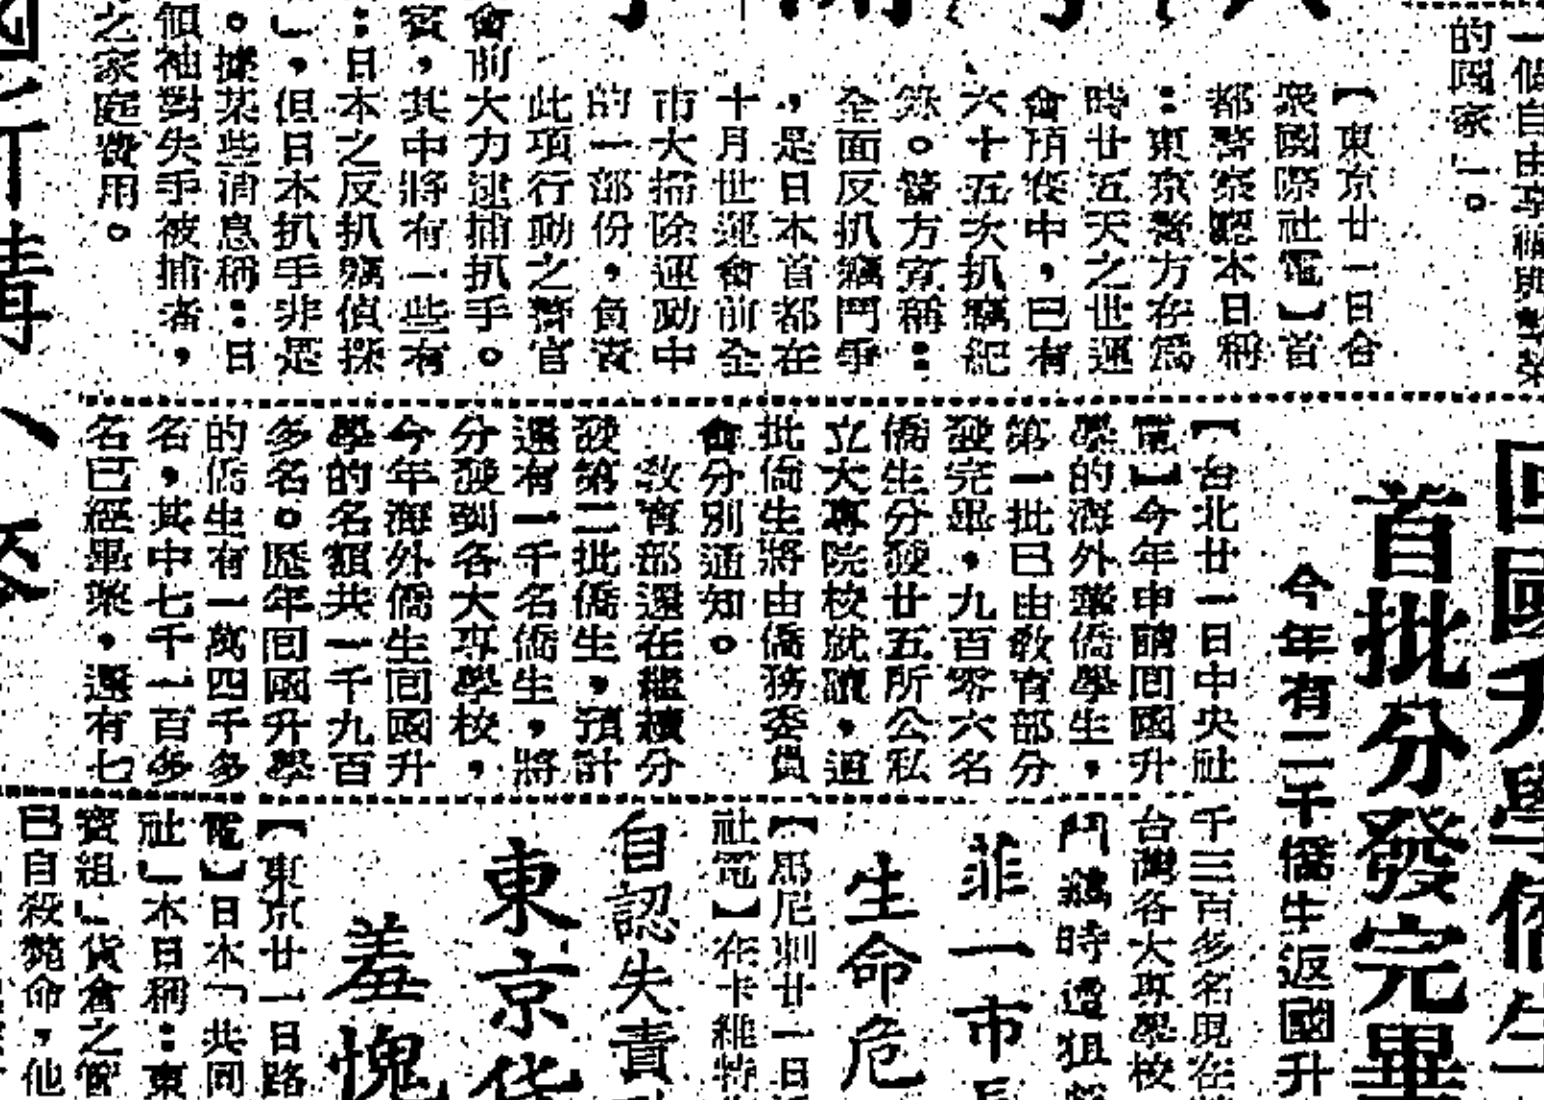 的國家」。
【東京廿一日合
衆國際社電】首
都警察總本日稱
：東京警方在爲
時廿五天之世運
會預賽中，已有
六十五次扒竊紀
錄。警方宣稱：
全面反扒竊鬥爭
，是日本首都在
十月世運會前全
市大掃除運動中
的一部份，負責
此項行動之警官
會前大力逮捕扒手。
賓，其中將有一些有
：日本之反扒竊偵探
」，但日本扒手非是
。據某些消息稱：日
領袖對失手被捕者，
之家庭費用。
回國升學僑生
首批分發完畢
今年有二千僑生返國升
【台北廿一日中央社
電】今年申請回國升
學的海外華僑學生，
第一批已由教育部分
發完畢，九百零六名
僑生分發廿五所公私
立大專院校就讀，這
批僑生將由僑務委員
會分別通知。
教育部還在繼續分
發第二批僑生，預計
還有一千名僑生，將
分發到各大專學校，
今年海外僑生回國升
學的名額共一千九百
多名。歷年回國升學
的僑生有一萬四千多
名，其中七千一百多
名已經畢業，還有七
千三百多名現在
台灣各大專學校
鬥鷄時遭狙
菲一市長
生命危
【馬尼剌廿一日
社電】在卡維特
自認失責
東京
羞愧
【東京廿一日路
電】日本「共同
社」本日稱：東
寶組」貨倉之管
已自殺斃命，他